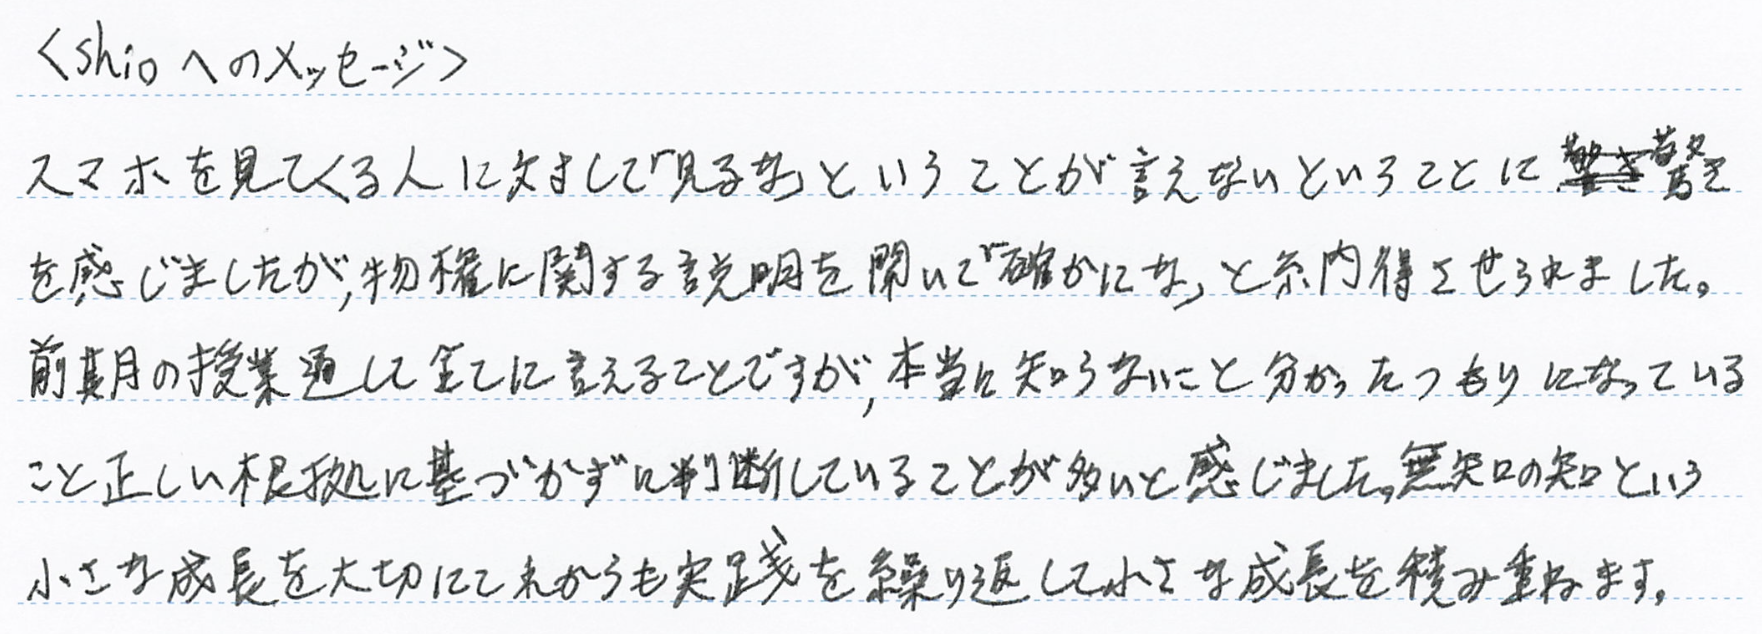 <shioへのメッセージ>
スマホを見てくる人に対して「見るな」ということが言えないということに驚き
を感じましたが,物権に関する説明を聞いて「確かにな」と納得させられました。
前期の授業通して全てに言えることですが,本当に知らないこと分かったつもりになっている
こと正しい根拠に基づかずに判断していることが多いと感じました。無知の知という
小さな成長を大切にこれからも実践を繰り返して小さな成長を積み重ねます。